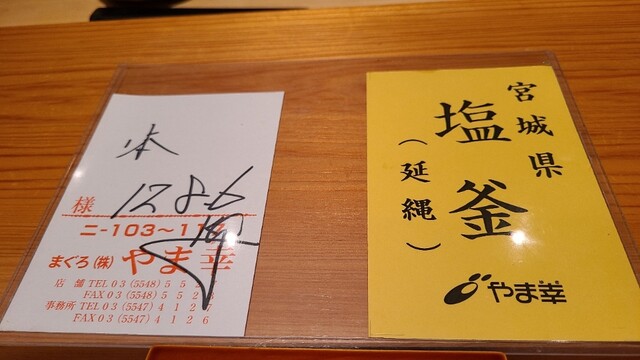 本
128.6
様
ニ-103～11
まぐろ(株) やま幸
店 舗 TEL 03 (5548) 5 5
FAX 03 (5548) 5 5 2
事務所 TEL 03 (5547) 4 1 2 7
FAX 03 (5547) 4 1 2 6
宮城県
塩釜
(延縄)
やま幸